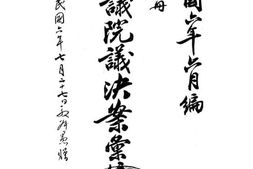 國六年六月編
議院議決案彙
民國六年七月二十七日